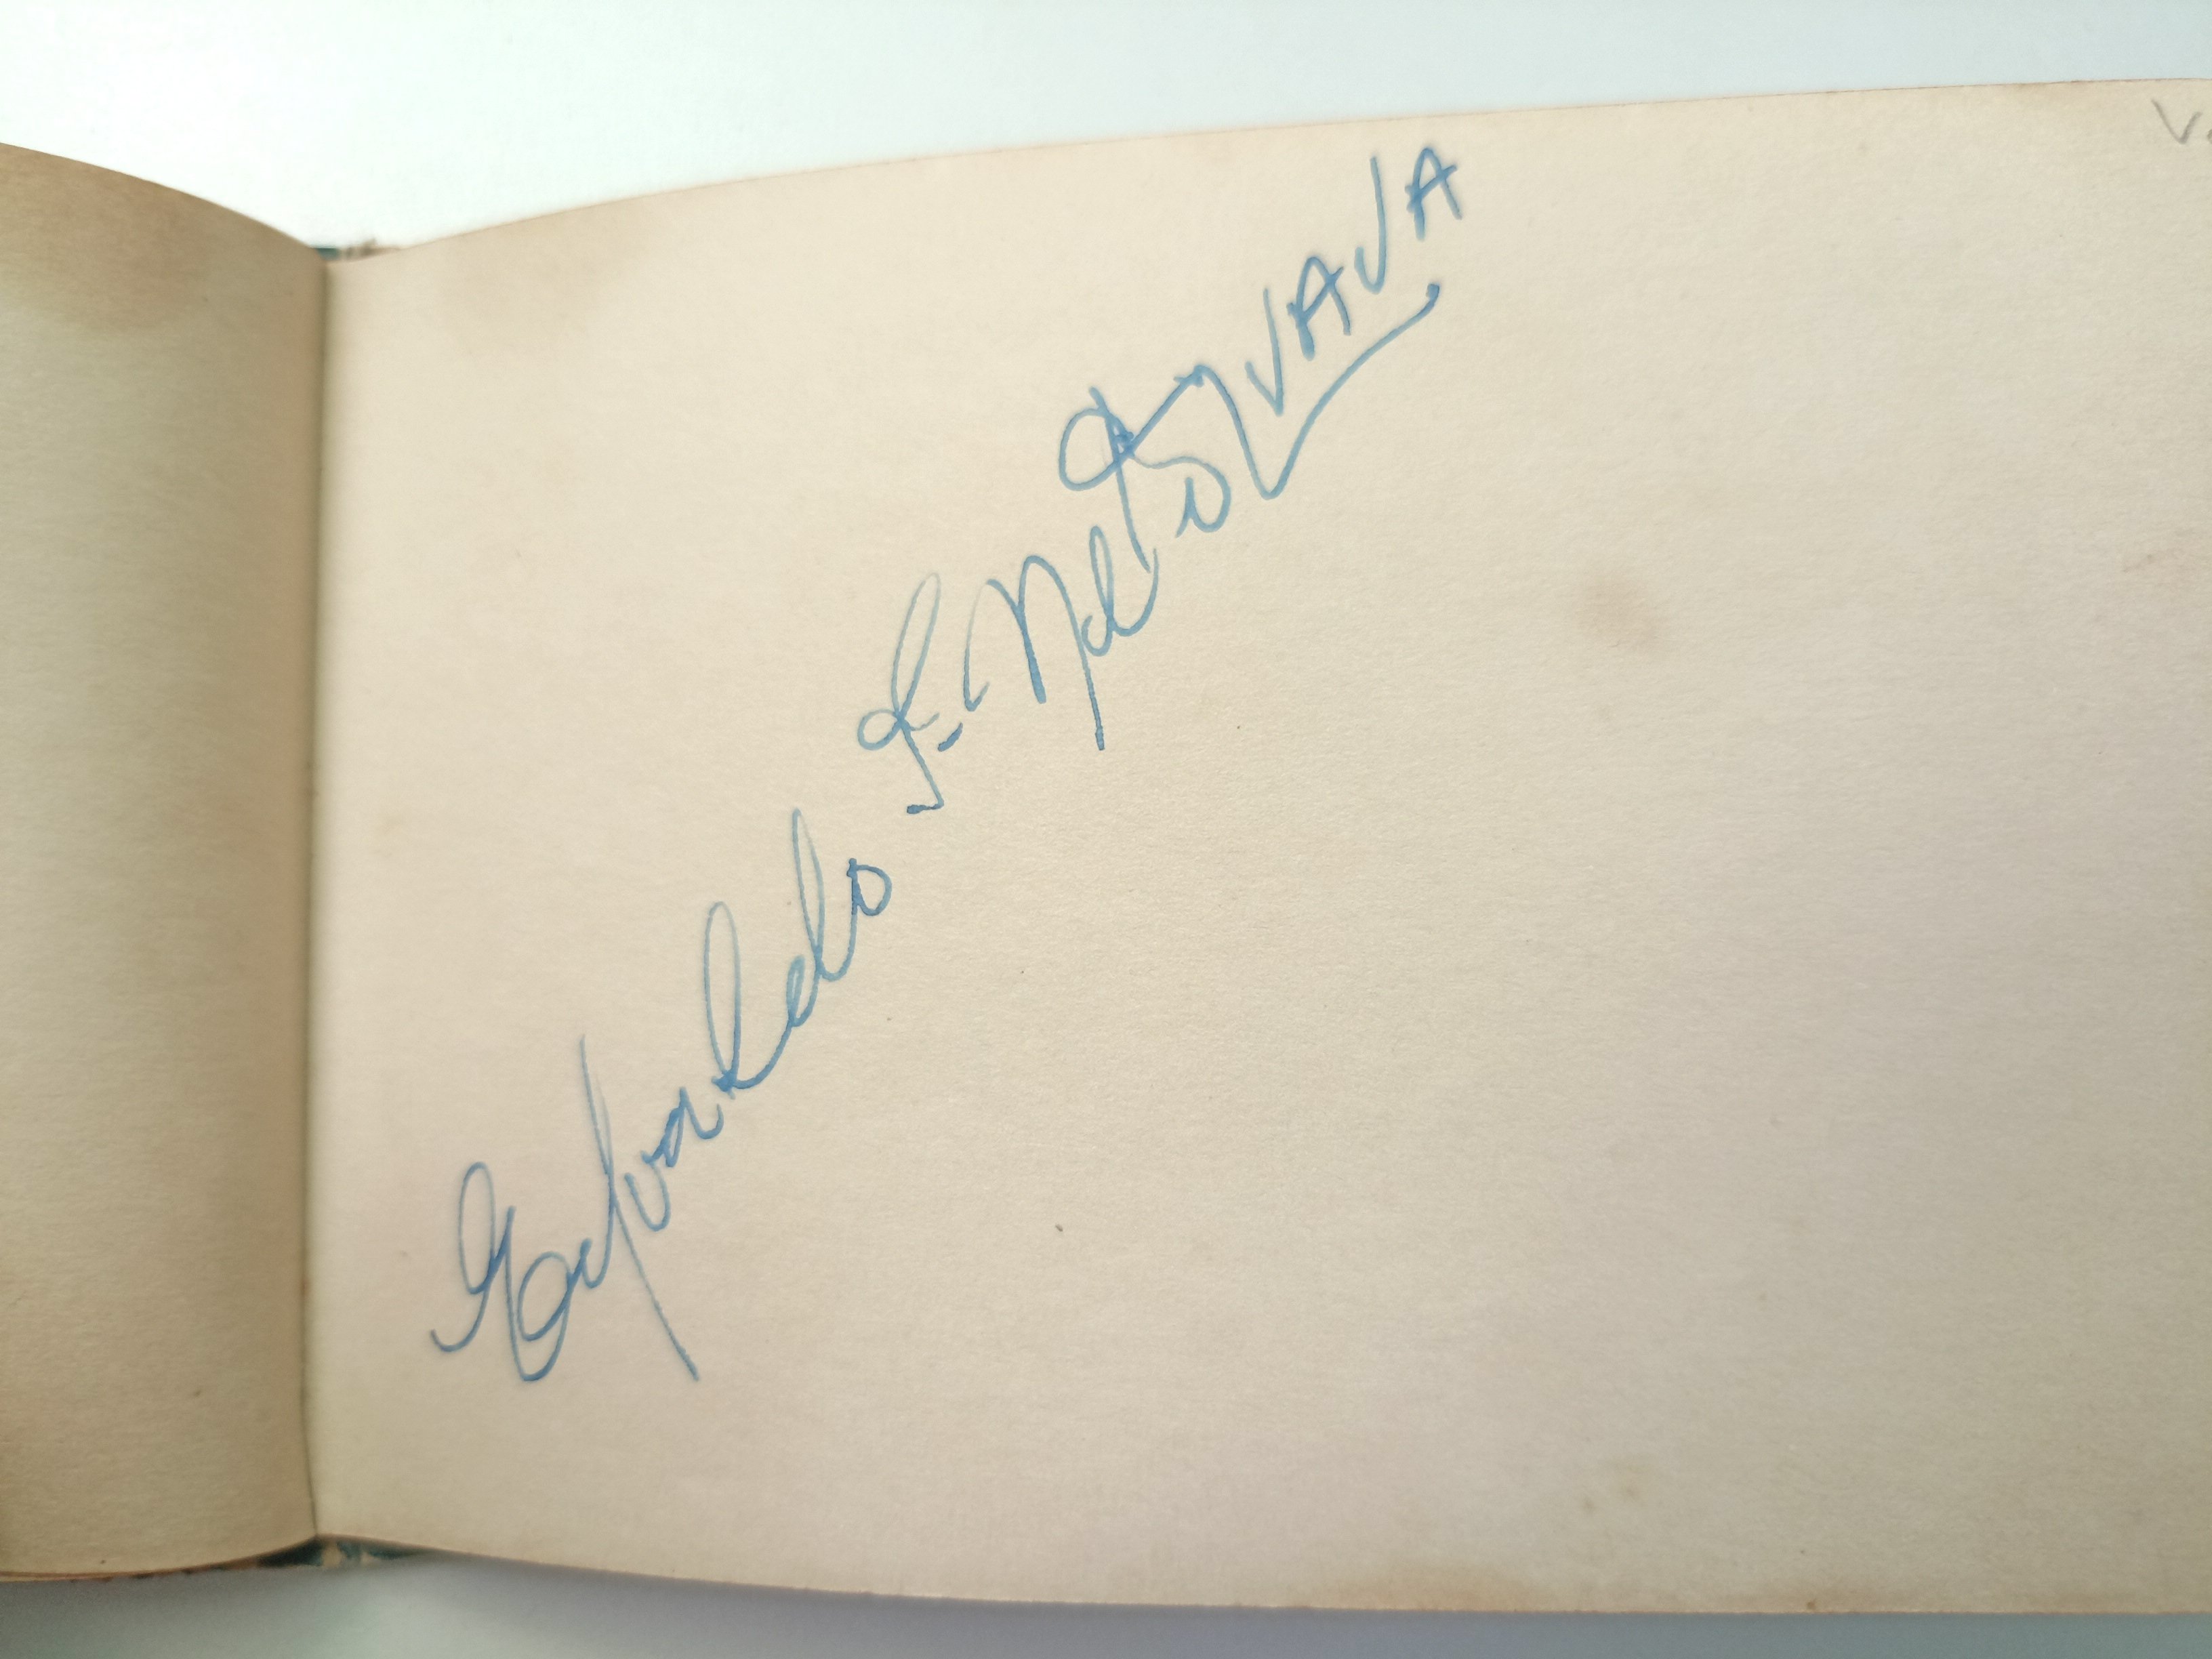 Edvaldo I. Neto VAVA